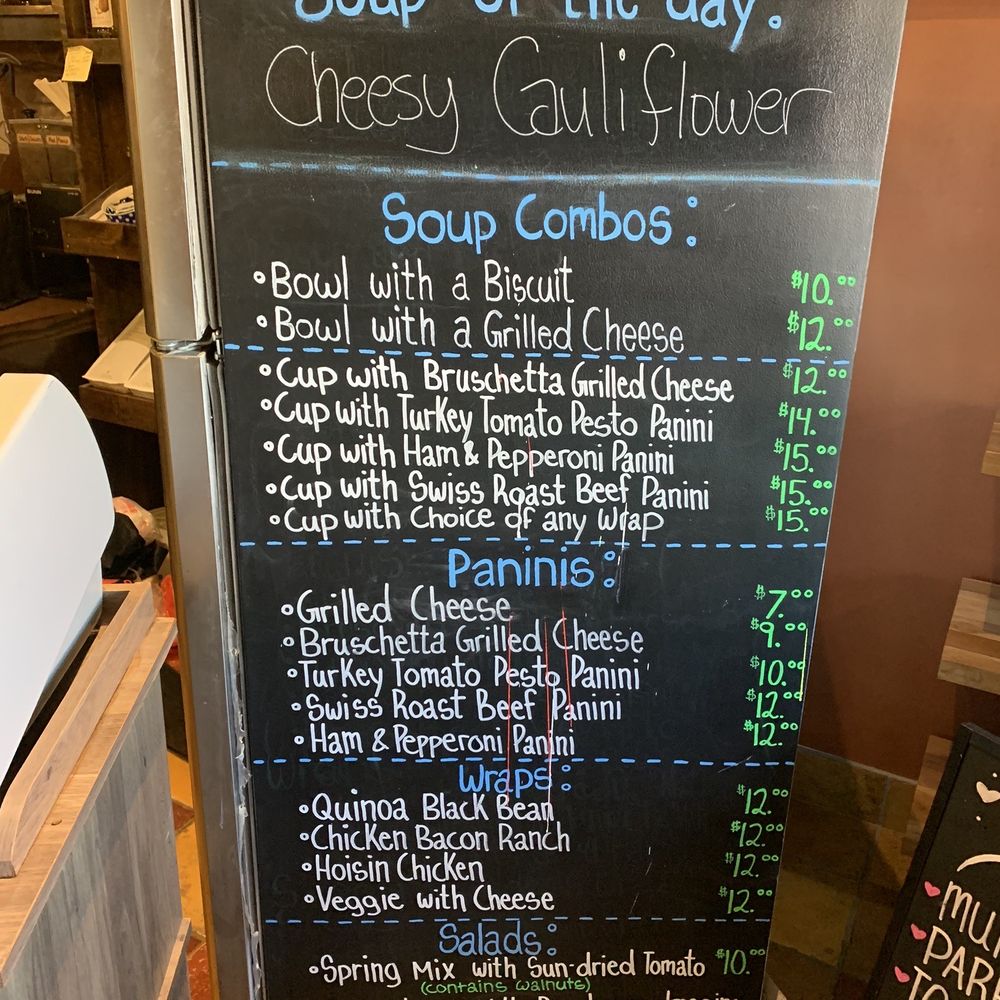 Soup of the day:
Cheesy Cauliflower
Soup Combos:
•Bowl with a Biscuit $10.00
•Bowl with a Grilled Cheese $12.00
•Cup with Bruschetta Grilled Cheese $12.00
•Cup with Turkey Tomato Pesto Panini $14.00
•Cup with Ham & Pepperoni Panini $15.00
•Cup with Swiss Roast Beef Panini $15.00
•Cup with Choice of any Wrap $15.00
Paninis:
•Grilled Cheese $7.00
•Bruschetta Grilled Cheese $9.00
•Turkey Tomato Pesto Panini $10.00
•Swiss Roast Beef Panini $12.00
•Ham & Pepperoni Panini $12.00
Wraps:
•Quinoa Black Bean $12.00
•Chicken Bacon Ranch $12.00
•Hoisin Chicken $12.00
•Veggie with Cheese $12.00
Salads:
•Spring Mix with Sun-dried Tomato $10.00
(contains walnuts)
PAR
TO